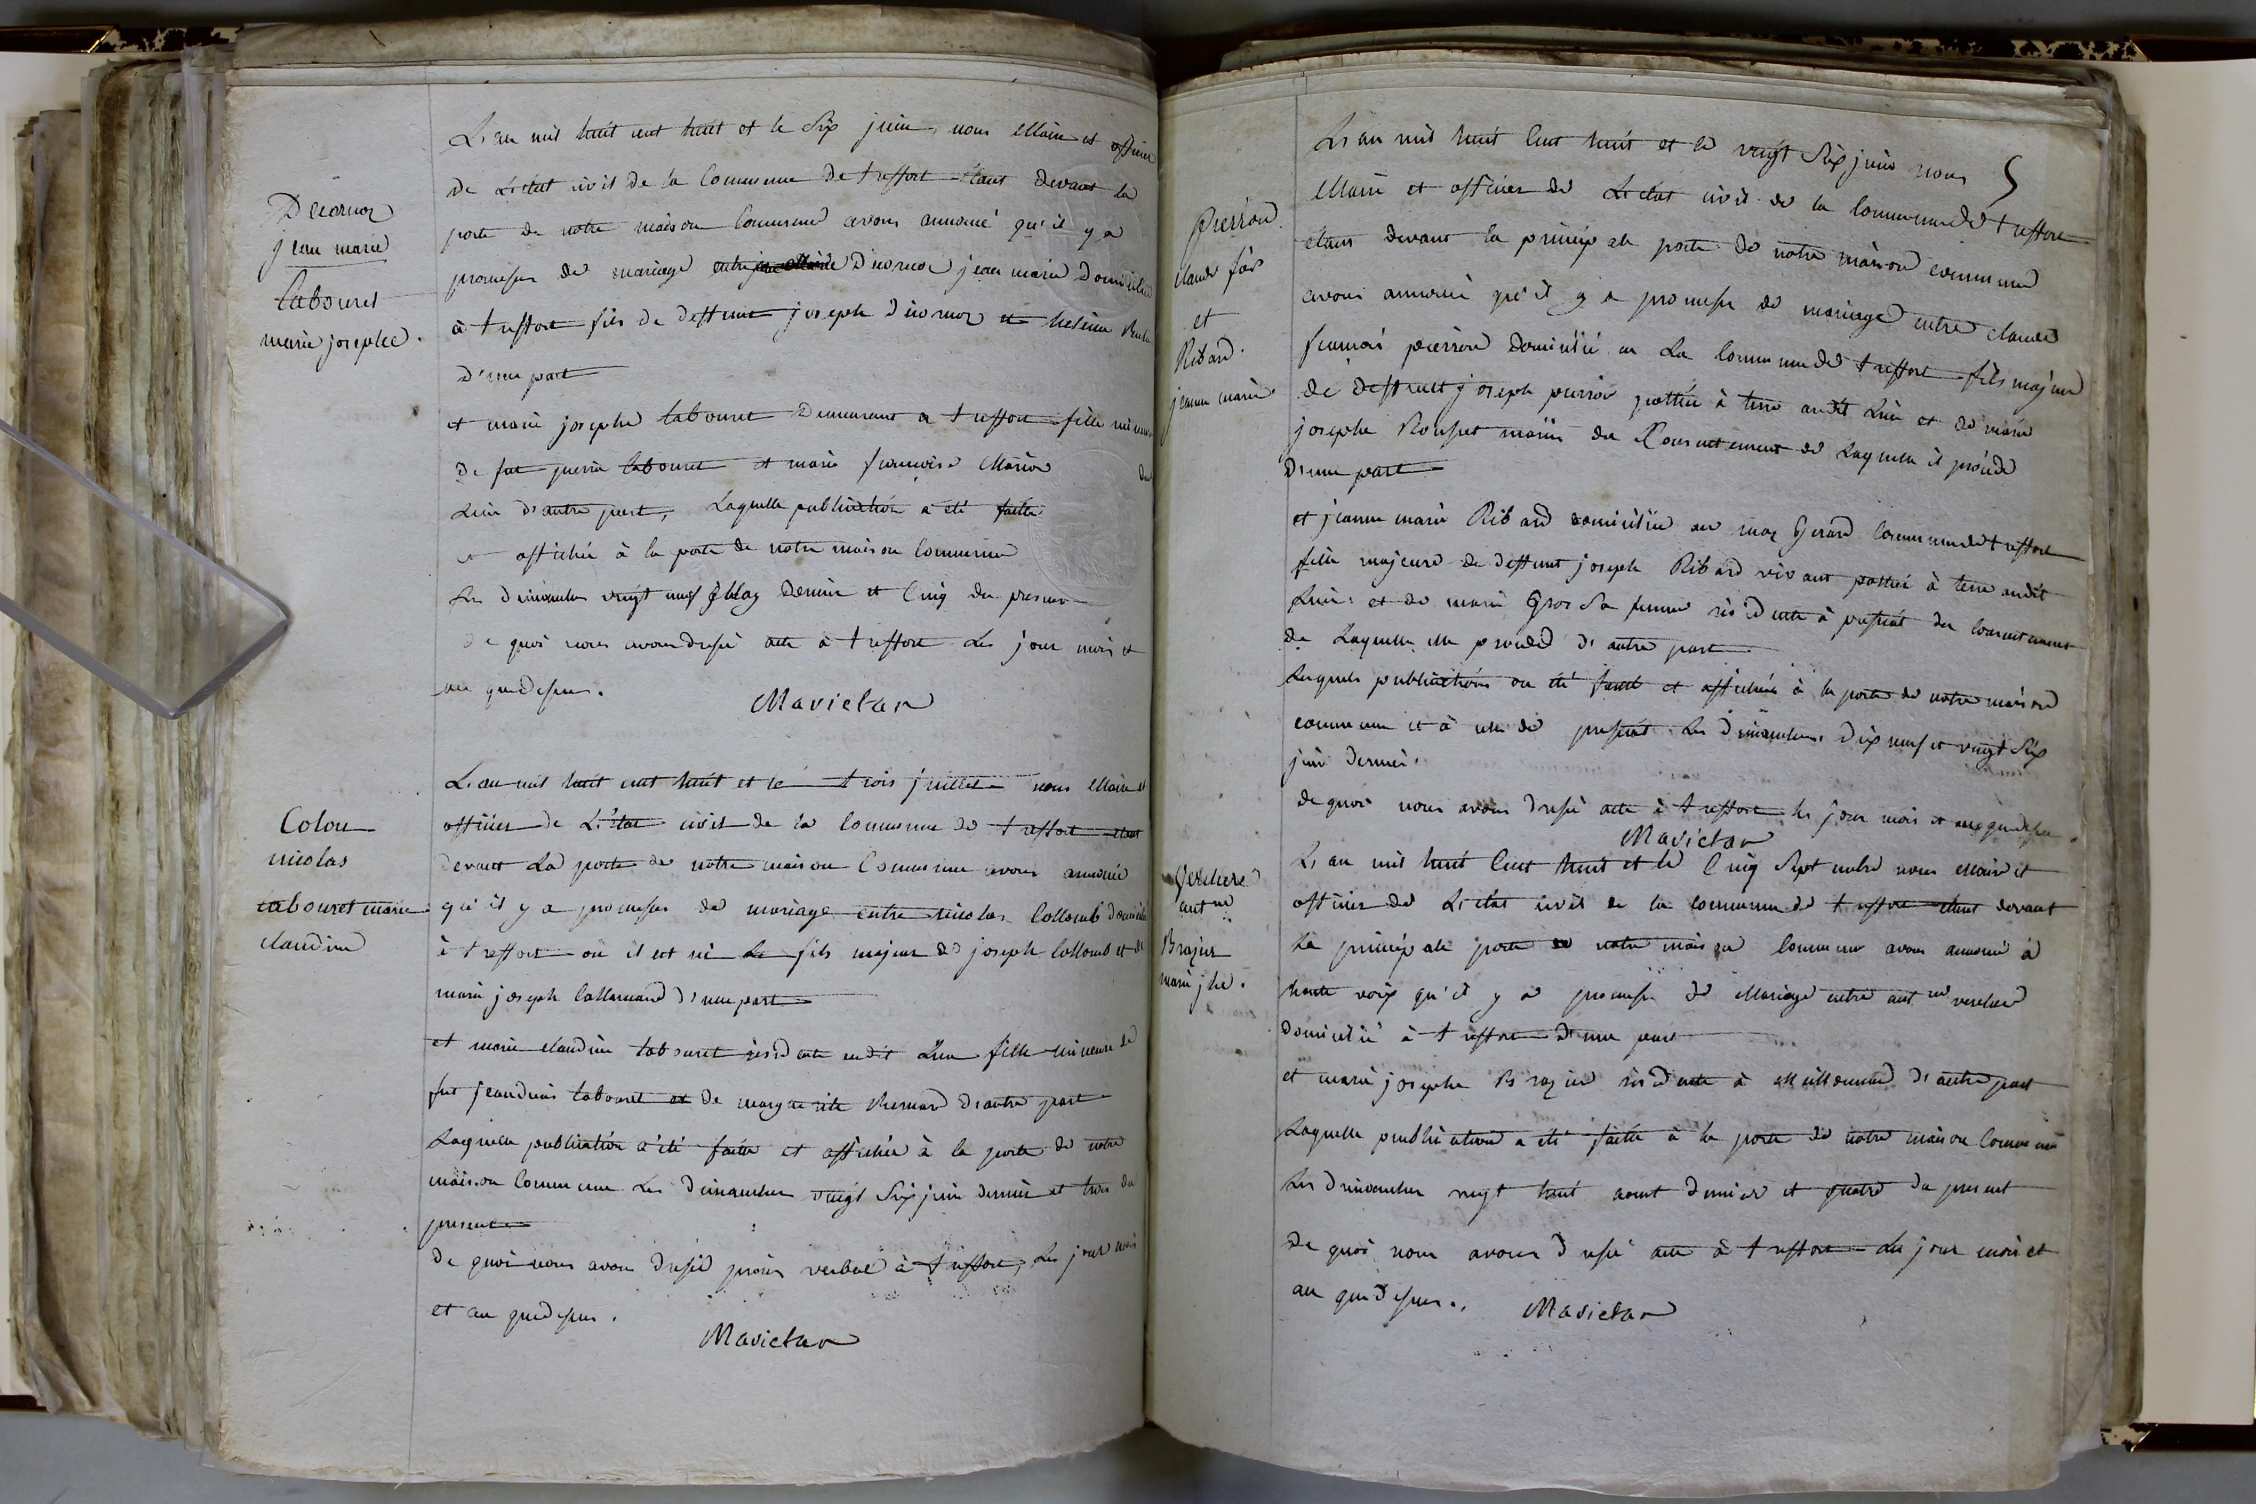 Decornoz
jean marie
Labouret
marie josephe.
L'an mil huit cent huit et le Six juin, nous Maire et officier
de L'état civil de la Commune de treffort étant devant la
porte de notre maison Commune avons annoncé qu'il y a
promesses de mariage entre Decornoz jean marie Domicilié
à treffort fils de deffunt joseph decornoz et
D'une part
et marie josephe labouret Demeurant a treffort fille mineure
De fut labouret et marie françoise du
Lieu d'autre part, Laquelle publication a été faite
et affichée à la porte de notre maison Commune
Les dimanches vingt neuf dernier et Cinq du present
De quoi nous avons dressé acte à treffort Les jour mois et
an que dessus.
Mavictar
Colon
nicolas
tabouret marie
claudine
L'an mil huit cent huit et le trois juillet nous Maire et
officier de L'état civil de la Commune de treffort étant
devant La porte de notre maison Commune avons annoncé
qu'il y a promesses de mariage entre nicolas Collomb domicilié
à treffort où il est né fils majeur de joseph Collomb et de
marie joseph D'une part
et marie claudine tabouret résidente audit Lieu fille mineure de
fut tabouret et De marguerite D'autre part
Laquelle publication a été faite et affichée à la porte de notre
maison Commune Les dimanches vingt Six juin dernier et trois du
present
De quoi nous avons dressé procès verbal à treffort, Les jour mois
et an que dessus.
Mavictar
5
pierron
claude fois
et
Ribard
jeanne marie
L'an mil huit Cent huit et le vingt Six juin nous
Maire et officier de L'état civil de la Commune de treffort
étant devant la principale porte de notre maison commune
avons annoncé qu'il y a promesse de mariage entre claude
françois pierron Domicilié en La Commune de treffort fils majeur
de deffunt joseph pierron à terre audit Lieu et de marie
josephe du Consentement de Laquelle il procède
D'une part
et jeanne marie Ribard domiciliée au maz Gerard Commune de treffort
fille majeure de deffunt joseph Ribard vivant à terre audit
Lieu: et de marie Gros Sa femme résidente à present du Consentement
de Laquelle elle procède D'autre part
Lesquels publications on été faite et affichée à la porte de notre maison
commune Les dimanches dix neuf et vingt Six
juin dernier
de quoi nous avons dressé acte à treffort les jour mois et an que dessus.
Mavictar
Verchere
ant ne
Brazier
marie jhe.
L'an mil huit Cent huit et le Cinq Septembre nous Maire et
officier de L'état civil de la commune de treffort étant devant
La principale porte de notre maison Commune avons annoncé à
haute voix qu'il y a promesse de Mariage entre ant ne verchere
domicilié à treffort D'une part
et marie josephe Brazier résidente à Meillonnas D'autre part
Laquelle publication a été faite à la porte de notre maison Commune
Les dimanches vingt huit aout dernier et quatre du present
De quoi nous avons dressé acte à treffort Les jour mois et
an que dessus.
Mavictar